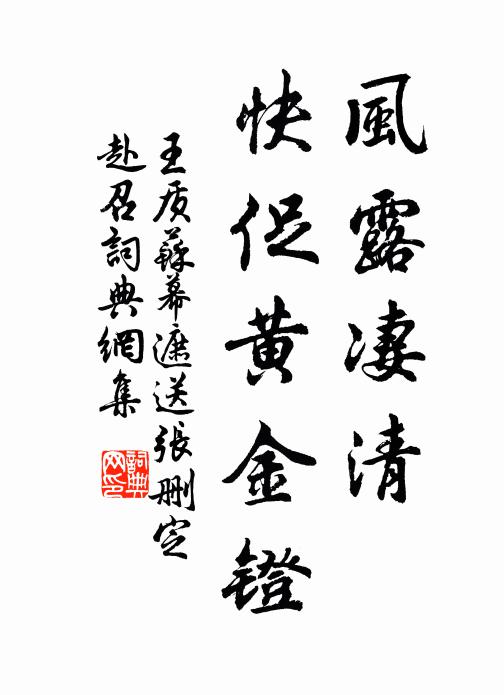 風露凄清
快促黄金鐙
王质蘇幕遮送張刪定
赴召詞典網集
詞典网印